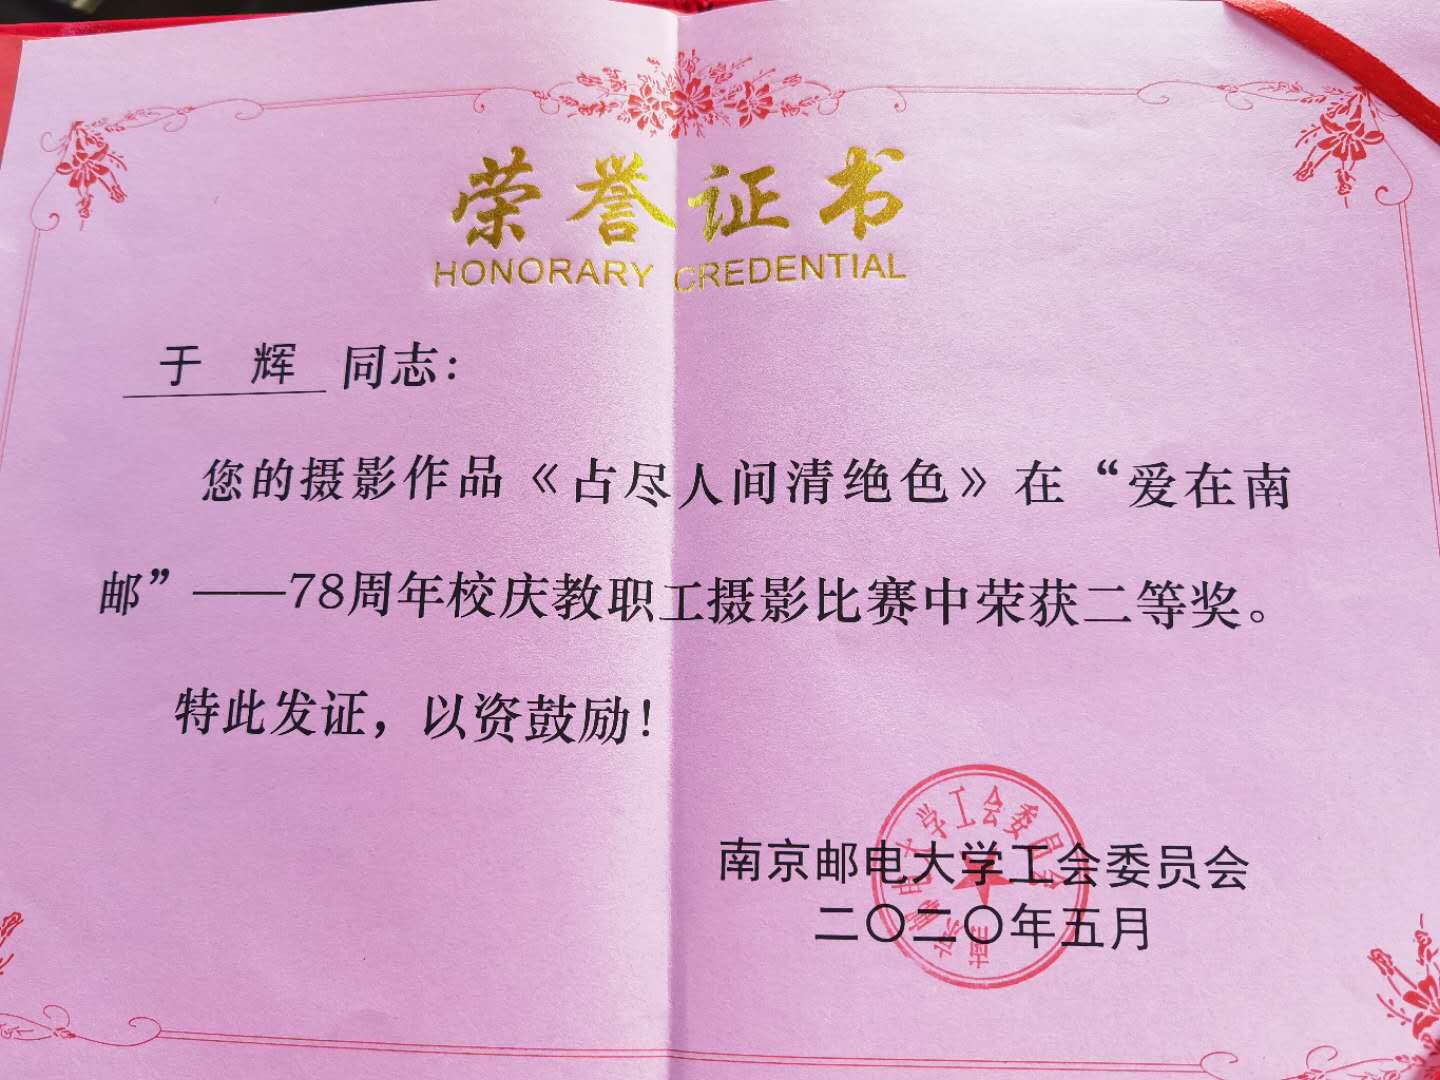 荣誉证书
HONORARY CREDENTIAL
于 辉 同志：
您的摄影作品《占尽人间清绝色》在“爱在南
邮”——78周年校庆教职工摄影比赛中荣获二等奖。
特此发证，以资鼓励！
南京邮电大学工会委员会
二〇二〇年五月
南京邮电大学工会委员会